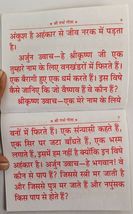 ॥ श्री गर्भ गीता ॥
अंकुश है अहंकार से जीव नरक में पड़ता
है।
अर्जुन उवाच-हे श्रीकृष्ण जी एक
तुम्हारे नाम के लिए वनखंडों में फिरते हैं।
एक बैरागी हुए एक धर्म करते हैं। इस विषे
कैसे जानिए कि जो वैष्णव हैं वे कौन हैं।
श्रीकृष्ण उवाच-एक मेरे नाम के लिये
॥ श्री गर्भ गीता ॥
वनों में फिरते हैं। एक संन्यासी कहते हैं,
एक सिर पर जटा बाँधते हैं, एक भस्म
लगाते हैं, इसमें हम नहीं हैं क्योंकि इन विषे
अहंकार है। अर्जुन उवाच-हे भगवान! वे
कौन से पाप हैं? जिससे स्त्री मर जाती है
और जिससे पुत्र मर जाते हैं और नपुंसक
किस पाप से होते हैं?